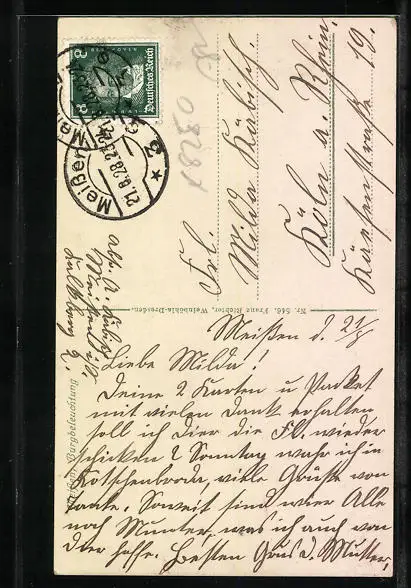 Deutsches Reich
8 8
Meißen
21.6.28
Frl.
Milda Kürbisch.
Köln a. Rhein.
19.
Nr. 546. Franz Richter, Weinböhla-Dresden.
Burgbeleuchtung
Meißen d. 21/6
Liebe Milda!
Deine 2 Karten u Packet
mit vielen Dank erhalten
soll ich Dier die Fl. wieder
schicken? Sonntag wahr ich in
Kötschenbroda, viele Grüße von
Tante. Soweit sind wier Alle
noch Munter, was ich auch von
Dier hoffe. Besten Grus d. Mutter,